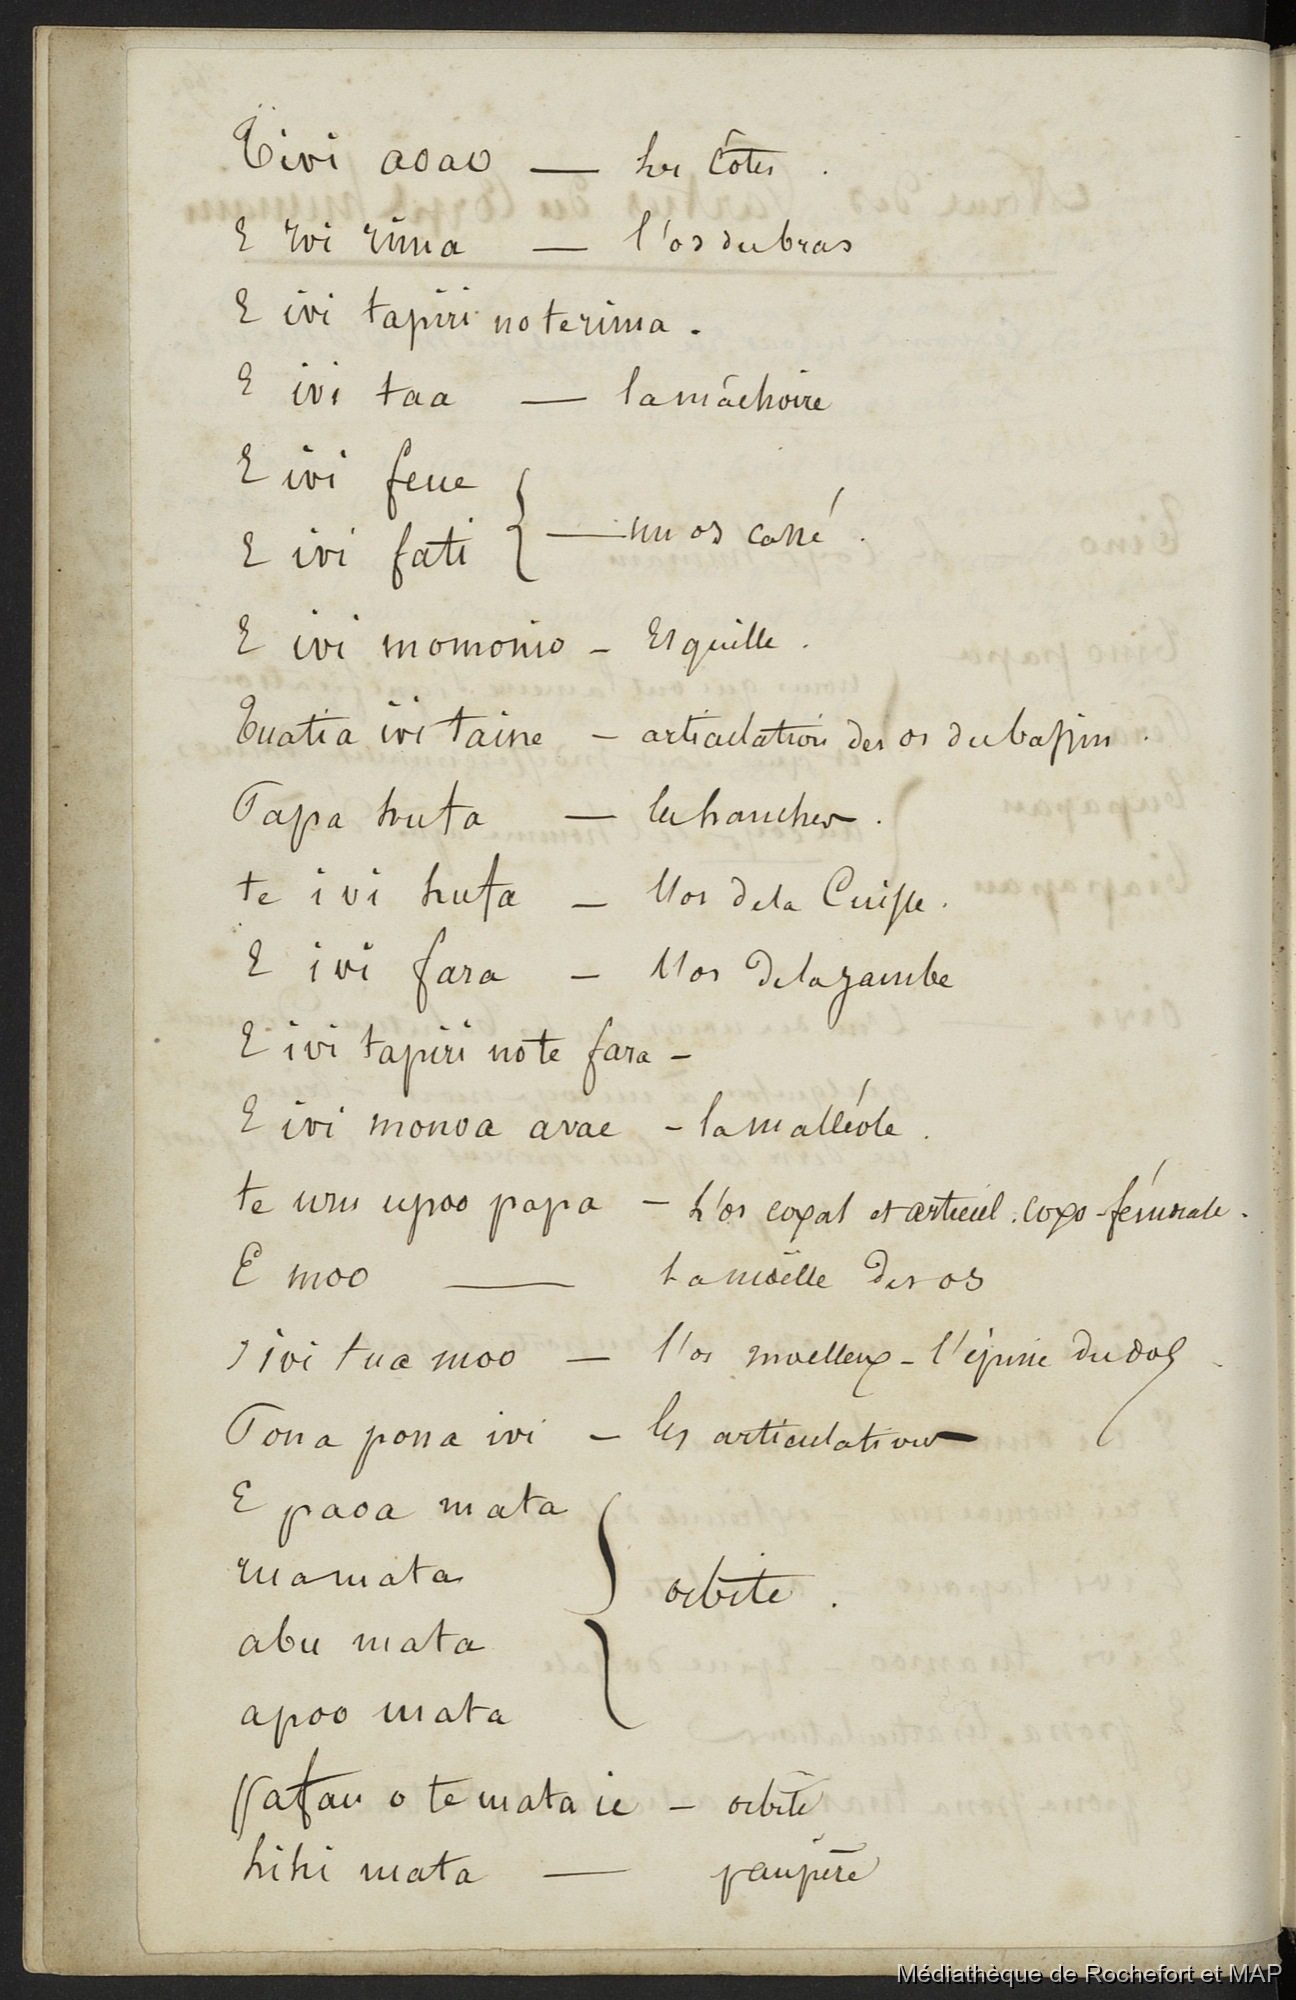 Tivi aoao — les côtes.
E ivi rima — l'os du bras
E ivi tapiri no te rima.
E ivi taa — la mâchoire
E ivi feue
E ivi fati } — un os cassé.
E ivi momomo — Esquille.
Tuatia ivi taire — articulation des os du bassin.
Tapa hufa — les hanches.
te ivi hufa — l'os de la Cuisse.
E ivi fara — l'os de la jambe
E ivi tapiri no te fara —
E ivi monoa avae — la malléole.
te uru upoo papa — L'os coxal et articul. coxo-fémorale.
E moo — La moëlle des os
ivi tua moo — l'os moelleux — l'épine du dos
Pona pona ivi — les articulations
E paoa mata
rua mata
abu mata
apoo mata } orbite.
pafau o te mata ie — orbite
hihi mata — paupière
Médiathèque de Rochefort et MAP